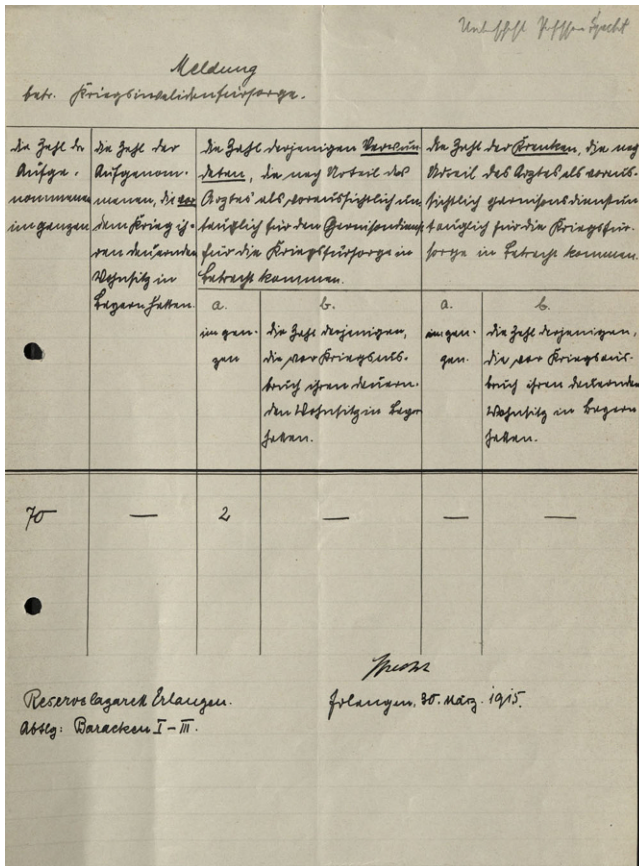 Unterschrift Professor Specht
Meldung
betr. Kriegsinvalidenfürsorge.
die Zahl der
Aufge-
nommenen
im ganzen
die Zahl der
Aufgenom-
menen, die vor
dem Krieg ih-
ren dauernden
Wohnsitz in
Bayern hatten.
die Zahl derjenigen Verwun-
deten, die nach Urteil des
Arztes als voraussichtlich un
tauglich für den Garnisondienst
für die Kriegsfürsorge in
Betracht kommen.
a.
im gan-
zen
b.
die Zahl derjenigen,
die vor Kriegsaus-
bruch ihren dauern-
den Wohnsitz in Bayern
hatten.
die Zahl der Kranken, die nach
Urteil des Arztes als voraus-
sichtlich garnisonsdienstun
tauglich für die Kriegsfür-
sorge in Betracht kommen.
a.
im gan-
zen.
b.
die Zahl derjenigen,
die vor Kriegsaus-
bruch ihren dauernden
Wohnsitz in Bayern
hatten.
70 — 2 — — —
Specht
Reservelazarett Erlangen.
Abtlg: Baracken I – III.
Erlangen, 30. März. 1915.